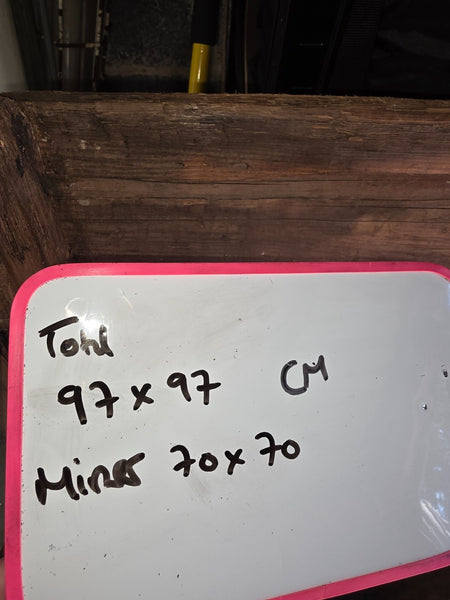 Total
97 x 97 CM
Mirror 70 x 70